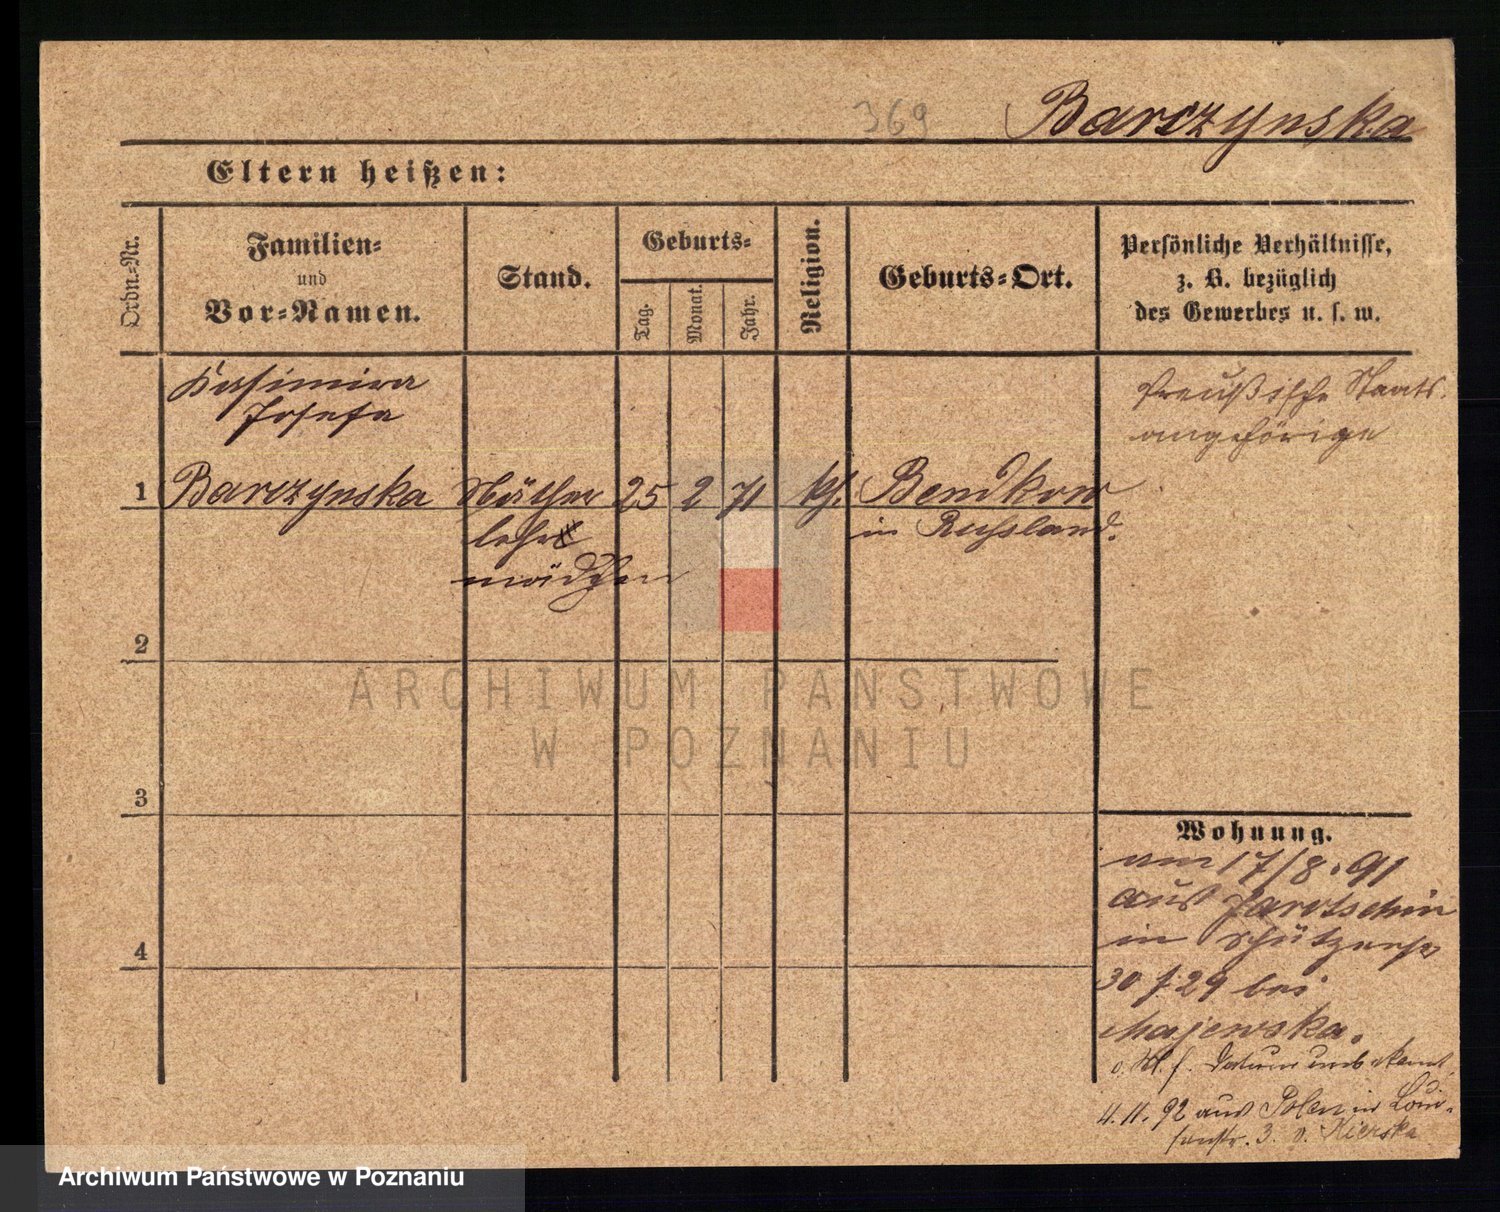 369
Barczynska
Eltern heißen:
Ordn.-Nr.
Familien-
und
Vor-Namen.
Stand.
Geburts-
Tag.
Monat.
Jahr.
Religion.
Geburts-Ort.
Persönliche Verhältnisse,
z. B. bezüglich
des Gewerbes u. s. w.
Kasimira
Josefa
Preußische Staats-
angehörige
1 Barczynska Näther 25 2 71 kh. Bendkow
lehr
mädchen
in Russland.
2
3
4
Wohnung.
am 17/8. 91
aus Jarotschin
in Schützenstr
30 f. 29 bei
Majewska.
Datum unbekannt
4. 11. 92 aus Polen in Loui-
senstr. 3. Kierska
ARCHIWUM PAŃSTWOWE
W POZNANIU
Archiwum Państwowe w Poznaniu